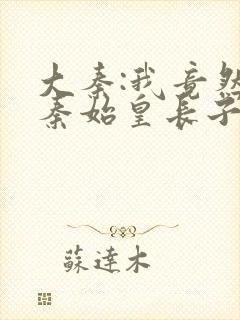 大秦:我竟然
秦始皇长子
蘇達木